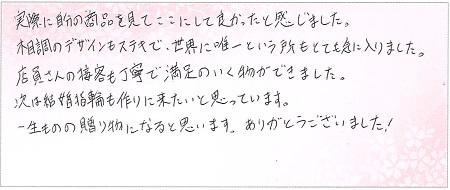 実際に自分の商品を見てここにして良かったと感じました。
木目調のデザインもステキで、世界に唯一という所もとても気に入りました。
店員さんの接客も丁寧で満足のいく物ができました。
次は結婚指輪も作りに来たいと思っています。
一生ものの贈り物になると思います。ありがとうございました!